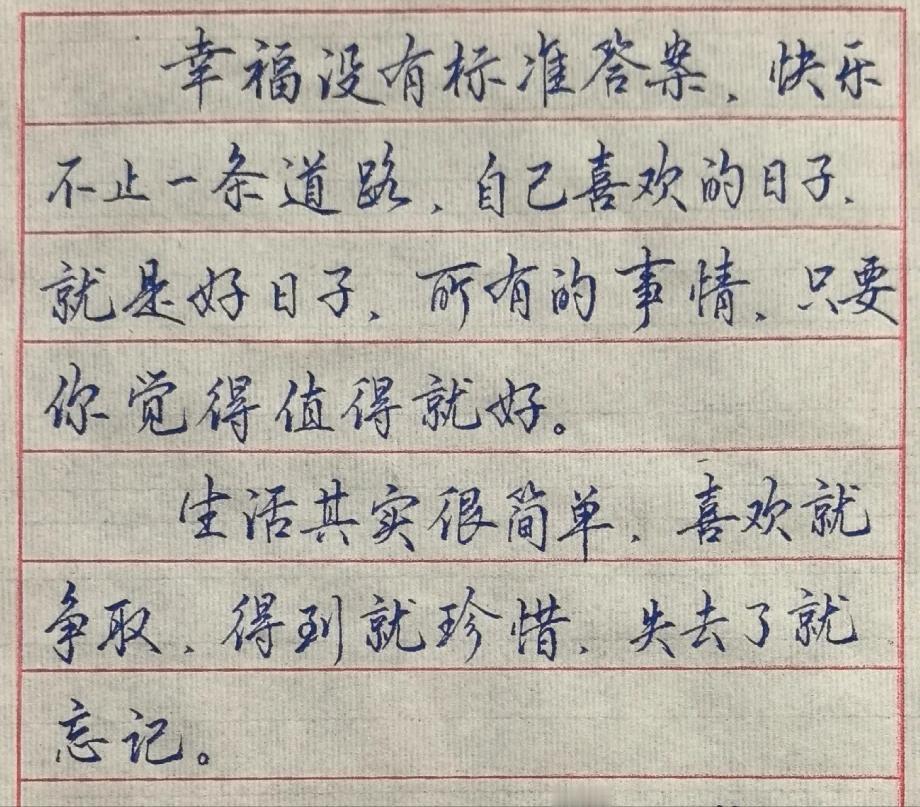 幸福没有标准答案，快乐
不止一条道路，自己喜欢的日子，
就是好日子，所有的事情，只要
你觉得值得就好。
生活其实很简单，喜欢就
争取，得到就珍惜，失去了就
忘记。